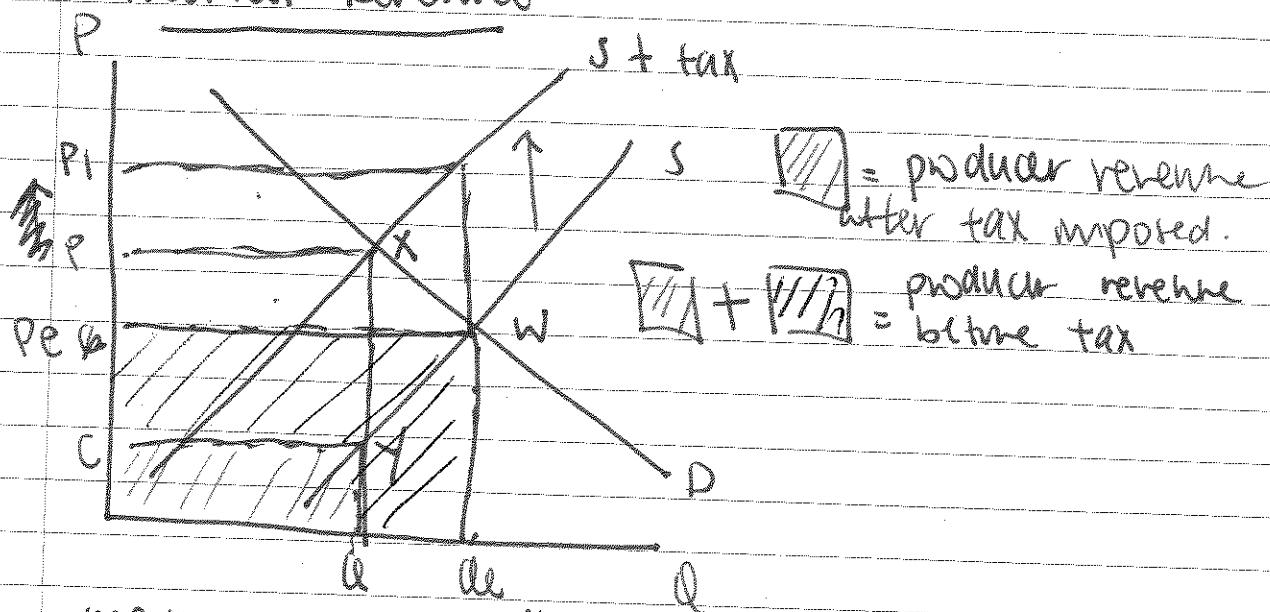 P
S + tax
P1
S
= producer revenue
after tax imposed.
P
X
+
= producer revenue
before tax
Pe
W
C
Y
D
Q
Qe
Q